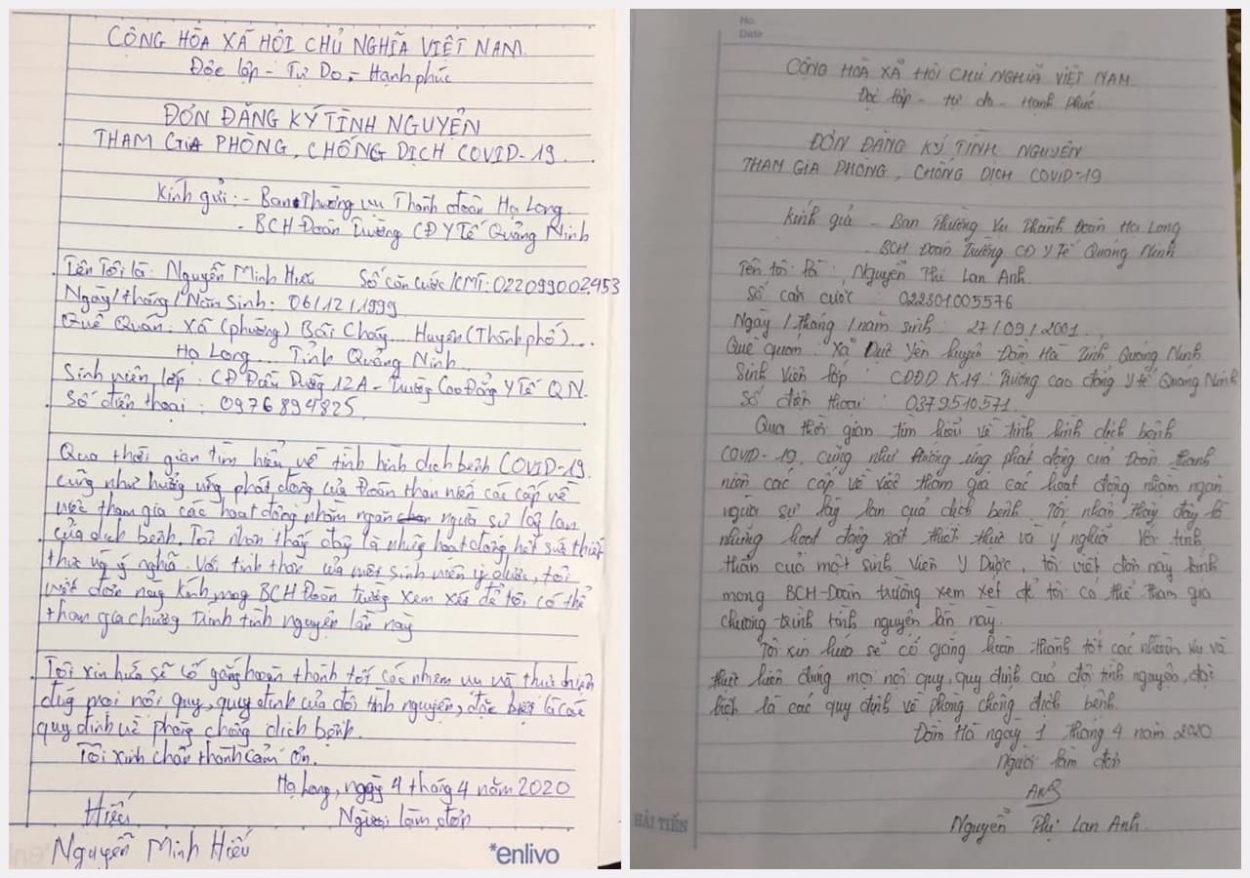 CỘNG HÒA XÃ HỘI CHỦ NGHĨA VIỆT NAM
Độc lập - Tự Do - Hạnh phúc
ĐƠN ĐĂNG KÝ TÌNH NGUYỆN
THAM GIA PHÒNG, CHỐNG DỊCH COVID-19
Kính gửi: - Ban Thường vụ Thành đoàn Hạ Long
- BCH Đoàn Trường CĐ Y Tế Quảng Ninh
Tên Tôi là: Nguyễn Minh Hiếu Số căn cước/CMT: 022099002453
Ngày/tháng/Năm Sinh: 06/12/1999
Quê Quán: Xã (phường) Bãi Cháy... Huyện (Thành phố)...
Hạ Long... Tỉnh Quảng Ninh
Sinh viên lớp: CĐ Điều Dưỡng 12A - Trường Cao Đẳng Y Tế QN.
Số điện thoại: 0976894825
Qua thời gian tìm hiểu về tình hình dịch bệnh COVID-19.
cũng như hưởng ứng phát động của Đoàn than niên các cấp về
việc tham gia các hoạt động nhằm ngăn ngừa sự lây lan
của dịch bệnh. Tôi nhận thấy đây là những hoạt động hết sức thiết
thực và ý nghĩa. Với tinh thần của một sinh viên y dược, tôi
viết đơn này kính mong BCH Đoàn trường xem xét để tôi có thể
tham gia chương trình tình nguyện lần này
Tôi xin hứa sẽ cố gắng hoàn thành tốt các nhiệm vụ và thực hiện
đúng mọi nội quy, quy định của đội tình nguyện, đặc biệt là các
quy định về phòng chống dịch bệnh.
Tôi xinh chân thành cảm ơn.
Hạ Long, ngày 4 tháng 4 năm 2020
Hiếu Người làm đơn
Nguyễn Minh Hiếu
*enlivo
No.
Date
CỘNG HOÀ XÃ HỘI CHỦ NGHĨA VIỆT NAM
Độc lập - tự do - Hạnh phúc
ĐƠN ĐĂNG KÝ TÌNH NGUYỆN
THAM GIA PHÒNG, CHỐNG DỊCH COVID-19
Kính gửi - Ban Thường Vụ Thành Đoàn Hạ Long
BCH Đoàn Trường CĐ Y Tế Quảng Ninh
Tên tôi là: Nguyễn Thị Lan Anh.
Số căn cước: 022301005576
Ngày/tháng/năm sinh: 27/09/2001
Quê quán: Xã Dực Yên huyện Đầm Hà Tỉnh Quảng Ninh
Sinh Viên lớp: CĐĐD K14. Trường cao đẳng y tế Quảng Ninh
Số điện thoại: 0379510571.
Qua thời gian tìm hiểu về tình hình dịch bệnh
COVID-19, cũng như hưởng ứng phát động của Đoàn thanh
niên các cấp về việc tham gia các hoạt động nhằm ngăn
ngừa sự lây lan của dịch bệnh. Tôi nhận thấy đây là
những hoạt động rất thiết thực và ý nghĩa. Với tinh
thần của một sinh viên Y Dược, tôi viết đơn này kính
mong BCH-Đoàn trường xem xét để tôi có thể tham gia
chương trình tình nguyện lần này.
Tôi xin hứa sẽ cố gắng hoàn thành tốt các nhiệm vụ và
thực hiện đúng mọi nội quy, quy định của đội tình nguyện, đặc
biệt là các quy định về phòng chống dịch bệnh.
Đầm Hà ngày 1 tháng 4 năm 2020
Người làm đơn
Anh
HẢI TIẾN
Nguyễn Thị Lan Anh.